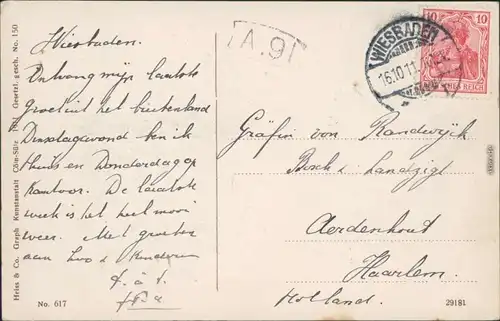 Wiesbaden.
Ontvang mijn laatste
groet uit het buitenland
Dinsdagavond ben ik
thuis en Donderdag op
kantoor. De laatste
week is het heel mooi
weer. Met groeten
aan en kinderen
A.9
WIESBADEN
16.10.11
10 10
DEUTSCHES REICH
Gräfin von Randwijk
Bosch & Landzigt
Aerdenhout
Haarlem.
Holland.
Heiss & Co. Graph Kunstanstalt Cöln Gesetzl. gesch. No. 150
No. 617
29181